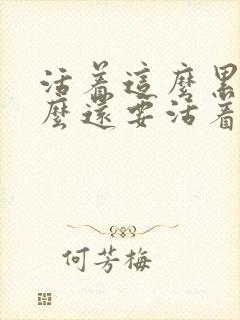 活着這麼累
麼還要活着
何芳梅